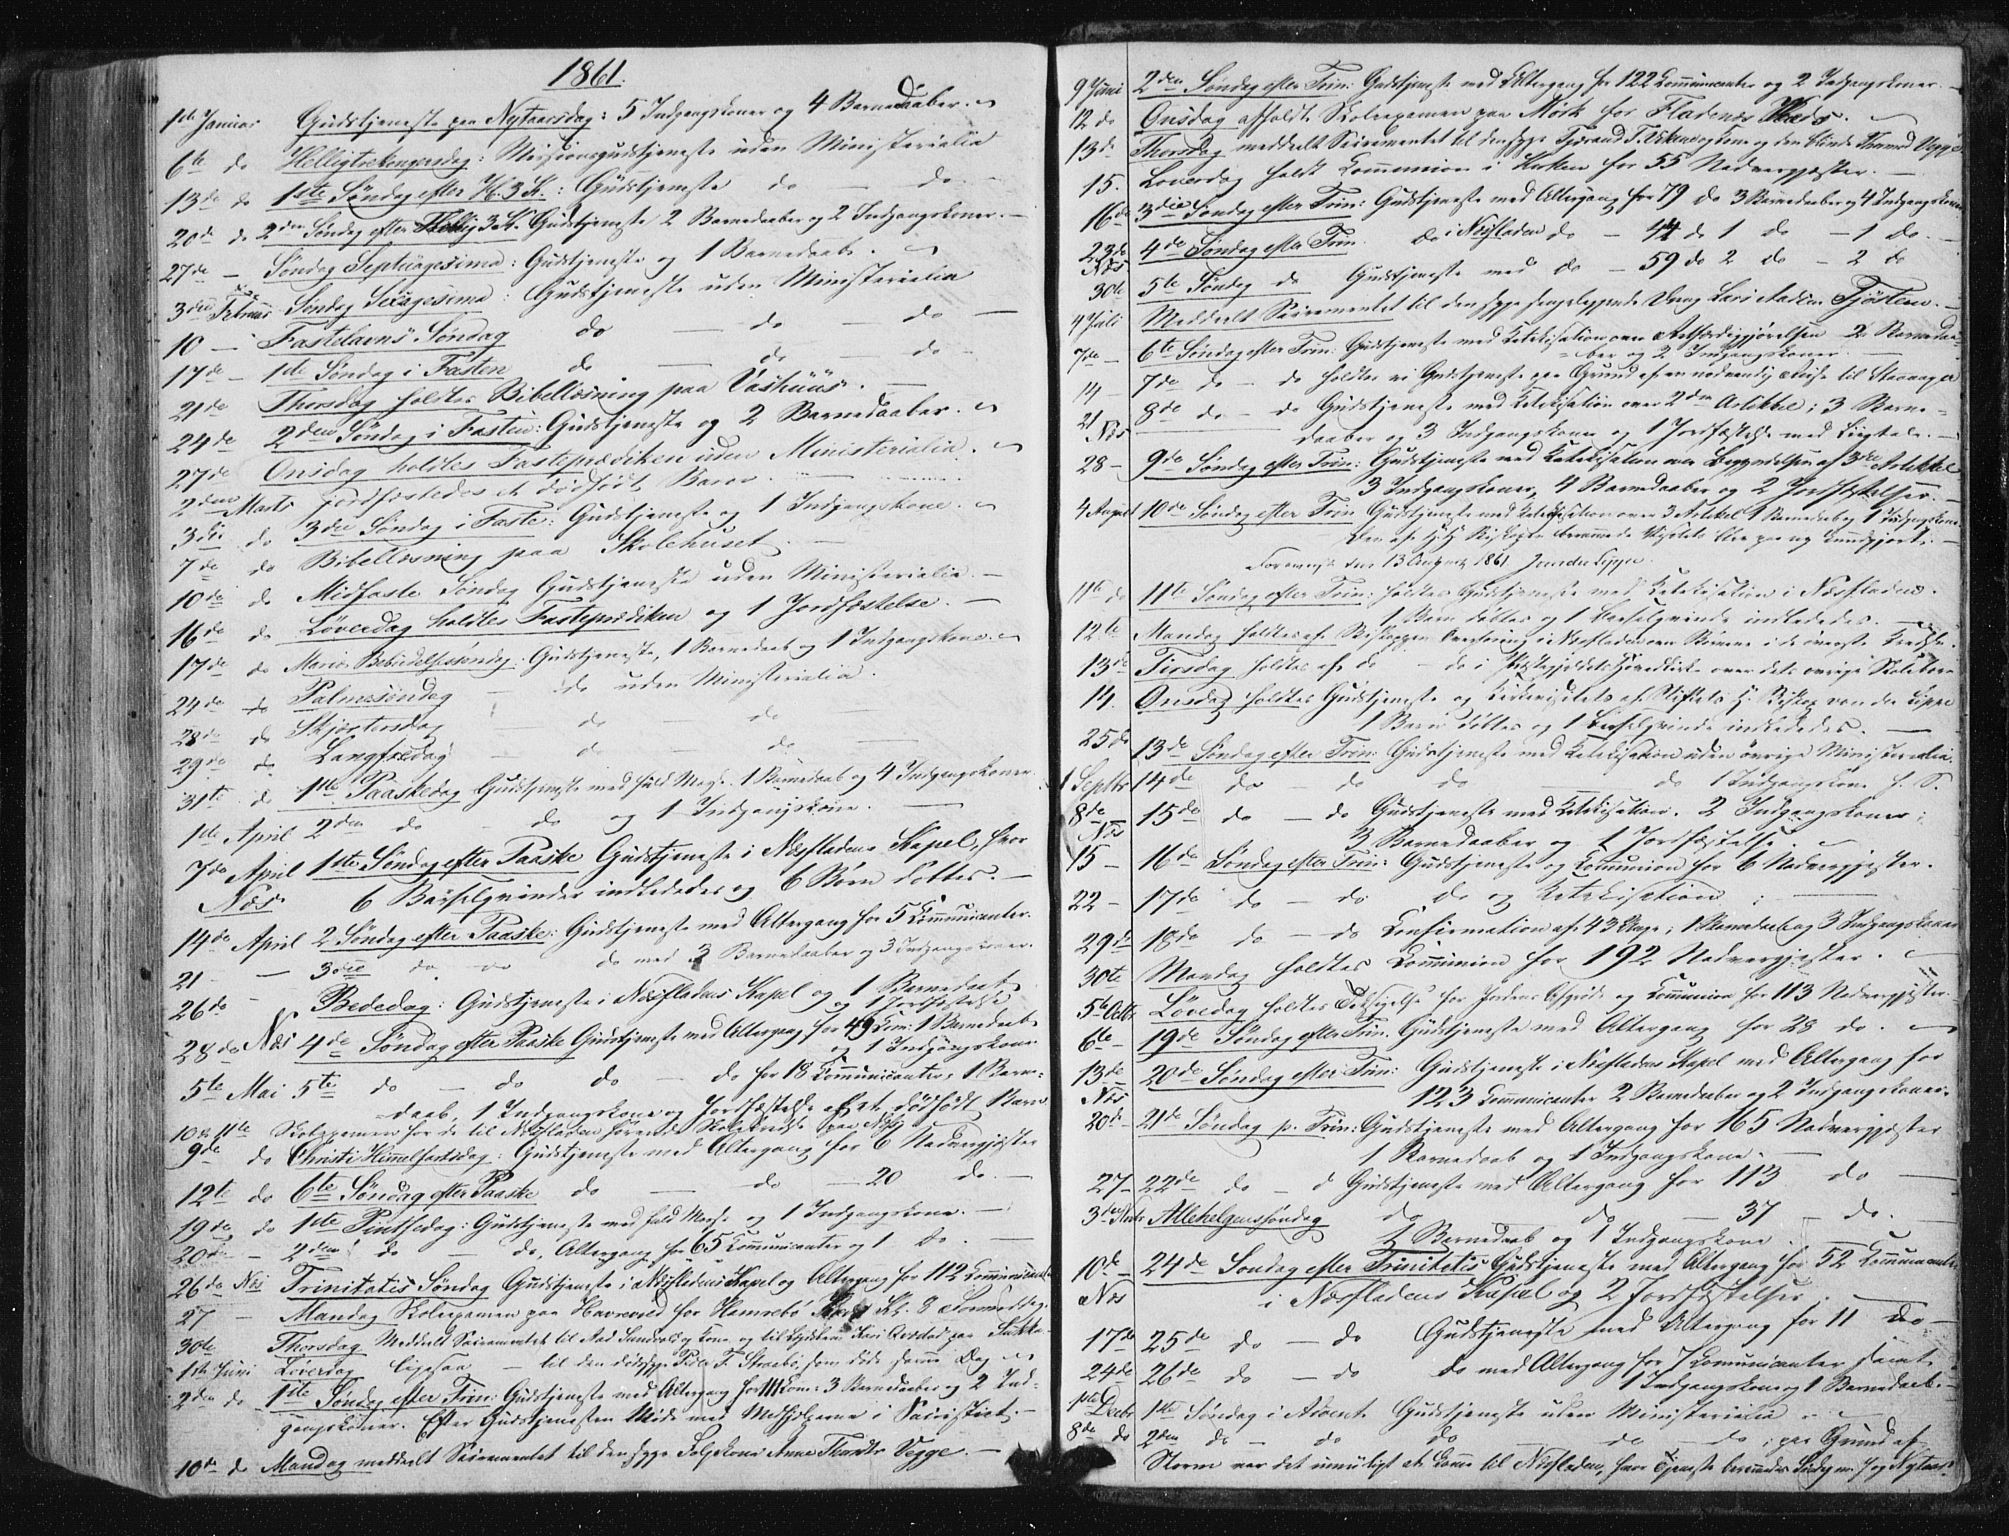 1861.
1ste Januar Gudstjeneste paa Nytaarsdag: 5 Indgangskoner og 4 Barnedaaber.
6te do Helligtrekongersdag: Missionsgudstjeneste uden Ministerialia
13de do 1ste Søndag efter H. 3 K.: Gudstjeneste do — do —
20de do 2den Søndag efter Hellig 3 K. Gudstjeneste 2 Barnedaaber og 2 Indgangskoner. —
27de — Søndag Septuagesima: Gudstjeneste og 1 Barnedaab.
3die Februar Søndag Sexagesima: Gudstjeneste uden Ministerialia
10 — Fastelavns Søndag do — do — do —
17de — 1ste Søndag i Fasten do — do do —
21de Thorsdag holdtes Bibellæsning paa Vashuus. —
24de 2den Søndag i Fasten: Gudstjeneste og 2 Barnedaaber.
27de Onsdag holdtes Fasteprædiken uden Ministerialia.
2den Marts jordfæstedes et dødfødt Barn.
3die do 3die Søndag i Faste: Gudstjeneste og 1 Indgangskone.
7de do Bibellæsning paa Skolehuset. —
10de do Midfaste Søndag Gudstjeneste uden Ministerialia. —
16de do Løverdag holdtes Fasteprædiken og 1 Jordfæstelse. —
17de do Mariæ Bebudelsessøndag: Gudstjeneste, 1 Barnedaab og 1 Indgangskone.
24de do Palmesøndag — do uden Ministerialia.
28de do Skjærtorsdag — do — do —
29de do Langfredag — do — do
31te do 1ste Paaskedag Gudstjeneste med fuld Messe. 1 Barnedaab og 4 Indgangskoner
1ste April 2den do — do og 1 Indgangskone.
7de April 1ste Søndag efter Paaske Gudstjeneste i Næsfladens Kapel, hvor
Næs 6 Barselqvinder indlededes og 6 Børn døbtes. —
14de April 2 Søndag efter Paaske: Gudstjeneste med Altergang for 5 Communicanter.
21 — 3die do do do med 3 Barnedaaber og 3 Indgangskoner.
26de — Bededag: Gudstjeneste i Næsfladens Kapel og 1 Barnedaab
og 1 Jordfæstelse
28de Næs 4de Søndag efter Paaske Gudstjeneste med Altergang for 49 Com: 1 Barnedaab
og 1 Indgangskone
5te Mai 5te do — do do — do for 18 Communicanter, 1 Barne-
daab, 1 Indgangskone og Jordfæstelse af et dødfødt Barn
10 & 11te Skoleexamen for de til Næsfladen hørende Skolekredse paa Næs
9de do Christi Himmelfartsdag: Gudstjeneste med Altergang for 6 Nadvergjæster
12te do 6te Søndag efter Paaske do — do — 20 do. —
19de do 1ste Pintsedag: Gudstjeneste med fuld Messe og 1 Indgangskone. —
20de — 2den do — do, Altergang for 65 Communicanter og 1 do. —
26de Næs Trinitatis Søndag Gudstjeneste i Næsfladens Kapel og Altergang for 112 Communicanter
27 — Mandag Skoleexamen paa Havrevold for Hamrebø Kl. 8 Formiddag.
30te Thorsdag meddeelt Sacramentet til
1ste Juni Løverdag ligesaa — til den dødssyge Peder F. Straabø, som døde samme Dag
2den do 1ste Søndag efter Trin: Gudstjeneste med Altergang for 111 Kom: 3 Barnedaaber og 2 Ind-
gangskoner. Efter Gudstjenesten Møde med Medhjelperne i Sacristiet. —
10de do Mandag meddeelt Sacramentet til den syge Anna Thordtr Vegge. —
9 Juni 2den Søndag efter Trin: Gudstjeneste med Altergang for 122 Communicanter og 2 Indgangskoner. —
12 do Onsdag afholdt Skoleexamen paa Mørk for Fladenes Kreds.
13de Thorsdag meddeelt Sacramentet til den syge og den blinde Vegge
15. Løverdag holdt Communion i Kirken for 55 Nadvergjæster. —
16de 3die Søndag efter Trin: Gudstjeneste med Altergang for 79 do 3 Barnedaaber og 4 Indgangskoner
23de 4de Søndag efter Trin. do i Næsfladen do — 44 do 1 do — 1 do. —
Næs
30te 5te Søndag do Gudstjeneste med do — 59 do 2 do — 2 do
4 Juli Meddeelt Sacramentet til den syge sengeliggende Dreng Lars Aadsen Fjøsten. —
7de — 6te Søndag efter Trin: Gudstjeneste med Katekisation over Retfærdiggjørelsen 2 Barnedaa-
ber og 2 Indgangskoner.
14 — 7de do — do holdtes ei Gudstjeneste paa Grund af en nødvendig Reise til Stavanger
21 8de do — do Gudstjeneste med Katekisation over 2den Artikkel; 3 Barne-
Næs daaber og 3 Indgangskoner og 1 Jordfæstelse med Liigtale. —
28 — 9de Søndag efter Trin: Gudstjeneste med Katekisation over Begyndelsen af 3die Artikkel
3 Indgangskoner, 4 Barnedaaber og 2 Jordfæstelser. —
4 August 10de Søndag efter Trin Gudstjeneste med Katekisation over 3 Artikel 1 Barnedaab og 1 Indgangskone.
Den af Hr. Biskopen berammede Visitats blev paa ny kundgjort. —
Foreviist den 13 August 1861 J. von der Lippe.
11te do 11te Søndag efter Trin: holdtes Gudstjeneste med Katekisation i Næsfladene.
1 Barn døbtes og 1 Barselqvinde indlededes. —
12te Mandag holdtes af Biskoppen i Næsfladen over Børnene i de øverste Kredse.
13de Tirsdag holdtes af do — do i Præstegjeldets Hovedkirke over dets øvrige Skolebørn
14. Onsdag holdtes Gudstjeneste og Kirkevisitats af Stiftets Hr. Biskop von der Lippe
1 Barn døbtes og 1 Barselqvinde indlededes. —
25 do 13de Søndag efter Trin: Gudstjeneste med Katekisation uden øvrige Ministerialia.
1 Septbr 14de do — do do — do 1 Indgangskone
8de 15de do — do Gudstjeneste med Katekisation. 2 Indgangskoner;
Næs 3 Barnedaaber og 1 Jordfæstelse.
15 — 16de Søndag efter Trin: Gudstjeneste og Communion for 6 Nadvergjæster.
22 — 17de do — do do og Katekisation
29de 18de do — do Confirmation af 43 Unge; 1 Barnedaab og 3 Indgangskoner
30te Mandag holdtes Communion for 192 Nadvergjæster.
5te Octbr Løverdag holdtes Taksigelse for Jordens Afgrøde og Communion for 113 Nadvergjæster.
6te — 19de Søndag efter Trin. Gudstjeneste med Altergang for 28 do. —
13de 20de Søndag efter Trin: Gudstjeneste i Næsfladens Kapel med Altergang for
Næs 123 Communicanter 2 Barnedaaber og 2 Indgangskoner.
20de — 21de Søndag p. Trin: Gudstjeneste med Altergang for 165 Nadvergjæster
1 Barnedaab og 1 Indgangskone. —
27 — 22de do — d Gudstjeneste med Altergang for 113 do —
3die Novbr Allehelgenssøndag do do — 37 do. —
1 Barnedaab og 1 Indgangskone.
10de — 24de Søndag efter Trinitatis Gudstjeneste med Altergang for 52 Communicanter
Næs i Næsfladens Kapel og 2 Jordfæstelser. —
17de 25de do — do Gudstjeneste med Altergang for 11 do —
24de 26de do — do do med Altergang for 7 Communicanter samt
1 Indgangskone og 1 Barnedaab. —
1ste Decbr 1ste Søndag i Advent Gudstjeneste uden Ministerialia
8de do 2den do — do do — do — do; paa Grund af
Storm var det umuligt at komme til Næsfladen, hvor Tjeneste